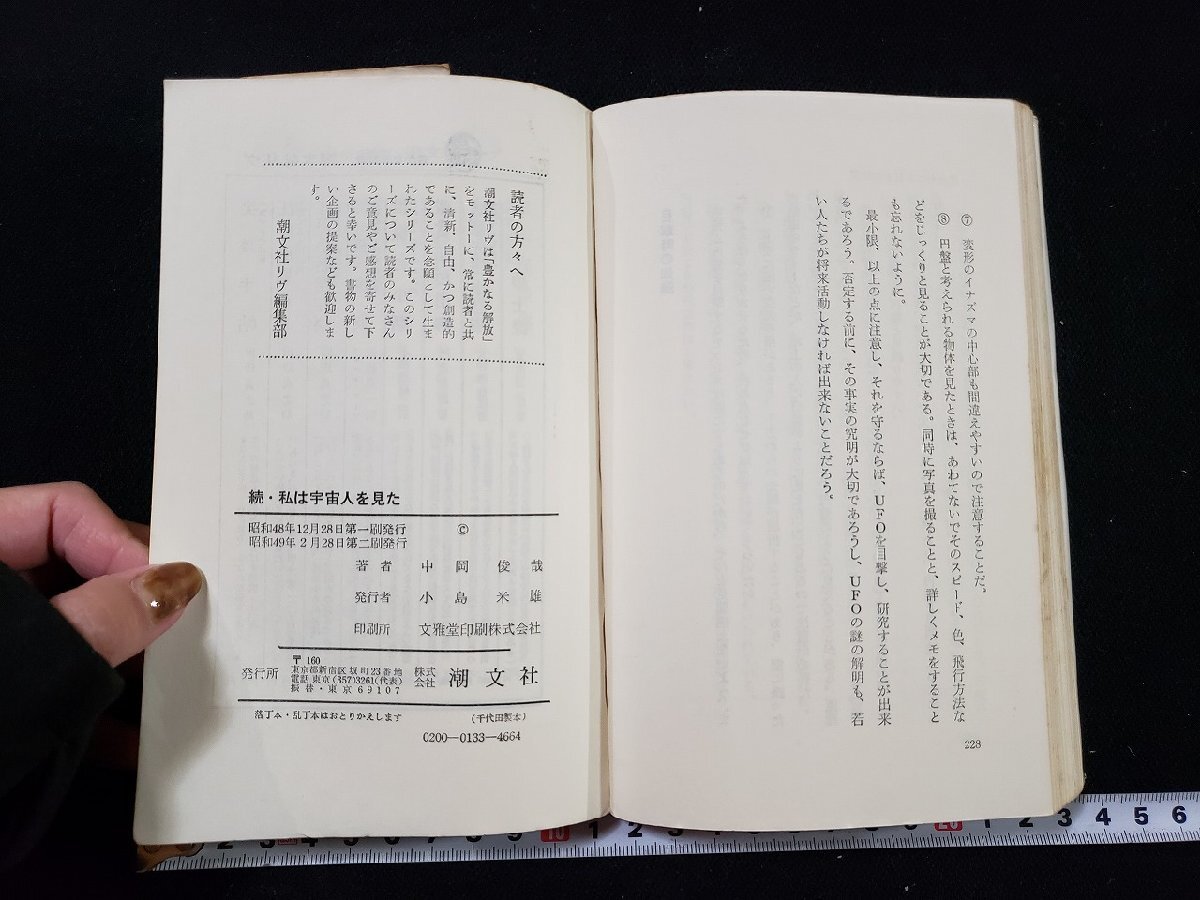 ⑦　変形のイナズマの中心部も間違えやすいので注意することだ。
⑧　円盤と考えられる物体を見たときは、あわてないでそのスピード、色、飛行方法な
どをじっくりと見ることが大切である。同時に写真を撮ることと、詳しくメモをすること
も忘れないように。
最小限、以上の点に注意し、それを守るならば、UFOを目撃し、研究することが出来
るであろう。否定する前に、その事実の究明が大切であろうし、UFOの謎の解明も、若
い人たちが将来活動しなければ出来ないことだろう。
228
読者の方々へ
潮文社リヴは「豊かなる解放」
をモットーに、常に読者と共
に、清新、自由、かつ創造的
であることを念願として生ま
れたシリーズです。このシリ
ーズについて読者のみなさん
のご意見やご感想を寄せて下
さると幸いです。書物の新し
い企画の提案なども歓迎しま
す。
潮文社リヴ編集部
続・私は宇宙人を見た
昭和48年12月28日第一刷発行　©
昭和49年2月28日第二刷発行
著者　中岡俊哉
発行者　小島米雄
印刷所　文雅堂印刷株式会社
発行所　株式会社　潮文社
〒160
東京都新宿区坂町23番地
電話東京(357)3261(代表)
振替・東京69107
落丁本・乱丁本はおとりかえします　(千代田製本)
0200—0133—4664
1 2 3 4 5 6 7 8 9 10 1 2 3 4 5 6 7 8 9 20 1 2 3 4 5 6